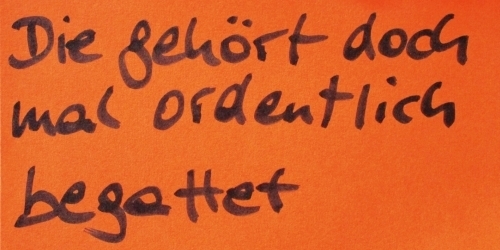 Die gehört doch
mal ordentlich
begattet